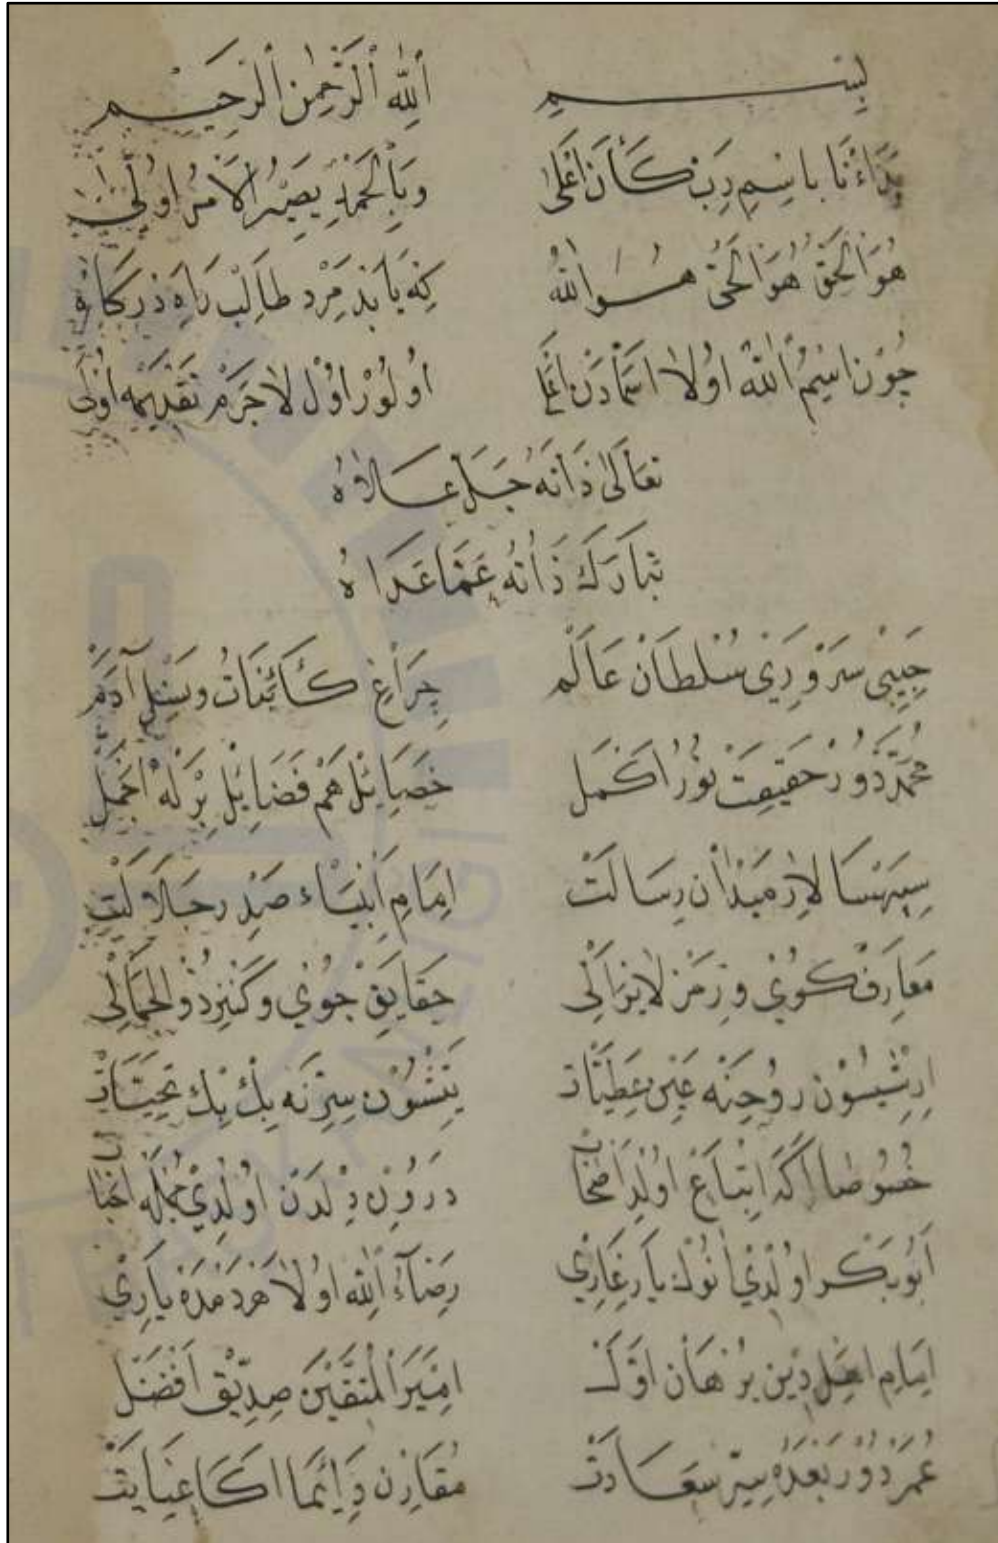 بِسْمِ اَللّٰهِ اَلرَّحْمٰنِ اَلرَّحِيمِ
بَدَاءْنَا بِاسْمِ رَبٍّ كَأنَ اَعْلٰى وَبِالْحَمْدِ يَصِيرُ الْاَمْرُ اَوْلٰى
هُوَ الْحَقُّ هُوَ الْحَىُّ هُوَ اللّٰهُ كِه يَابَدْ مَرْدِ طَالِبْ رَاهِ دَرْكَاهْ
چُونْ اِسْمُ اللّٰه اُولَا اَسْمَادَنْ اَعْلَى اُولُورْ اَوَّلْ لَاجَرَمْ تَقْدِيمَه اَوْلَى
تَعَالٰى ذَاتُهُ جَلَّ عَلَاهُ
تَبَارَكَ ذَاتُهُ عَمَّا عَدَاهُ
حَبِيبِى سَرْوَرِى سُلْطَانْ عَالَمْ چِرَاغِ كَأئِنَاتُ وَنَسْلِ آدَمْ
مُحَمَّدْدُورْ حَقِيقَتْ نُورُ اَكْمَلْ خَصَايِلْ هَمْ فَضَايِلْ بِرْلَهْ اَجْمَلْ
سِپَهْسَالَارِ مَيْدَانِ رِسَالَتْ اِمَامِ اَنْبِيَاء صَدْرِ جَلَالَتْ
مَعَارِفْ كُويِ وَ رَمْزِ لَايَزَالِى حَقَايِقْ جُويِ وَ كَنْزِ ذُو الْجَمَالِى
اِرِشْسُونْ رُوحِنَه عَيْنِ عَطِيَّاتْ يَتِشْسُونْ سِرِّنَه بِكْ بِكْ تَحِيَّاتْ
خُصُوصَا اَكَا اِتْبَاعْ اُولْدِ اَصْحَابْ دَرُونِ دِلْدَنْ اُولْدِي جُمْلَه اَحْبَابْ
اَبُو بَكْر اُولْدِي اَنُوكْ يَارِ غَارِي رِضَآءُ اللّٰه اُولَا هَرْدَمْدَه يَارِي
اِمَامِ اَهْلِ دِينْ بُرْهَانِ اَوَّلْ اَمِيرَ الْمُتَّقِينَ صِدِّيقِ اَفْضَلْ
عُمَرْدُورْ بَعْدَهُ سِرِّ سَعَادَتْ مُقَارِنْ دَائِمَا اَكَا عِنَايَتْ